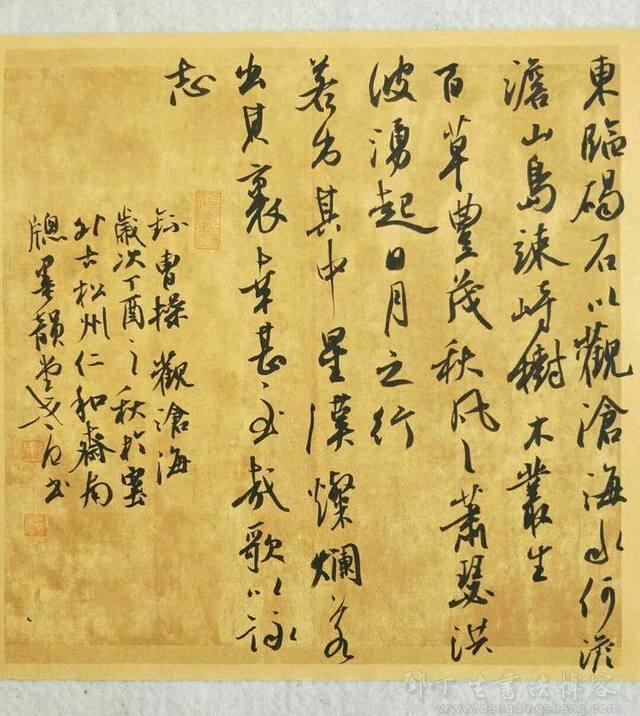 東臨碣石以觀滄海水何澹
澹山島竦峙樹木叢生
百草豐茂秋風蕭瑟洪
波湧起日月之行
若出其中星漢燦爛若
出其裏幸甚至哉歌以詠
志
錄曹操觀滄海
歲次丁酉之秋於塞
外古松州仁和齋南
牕墨韻堂書
邓丁生書法博客
www.dengdingsheng.com